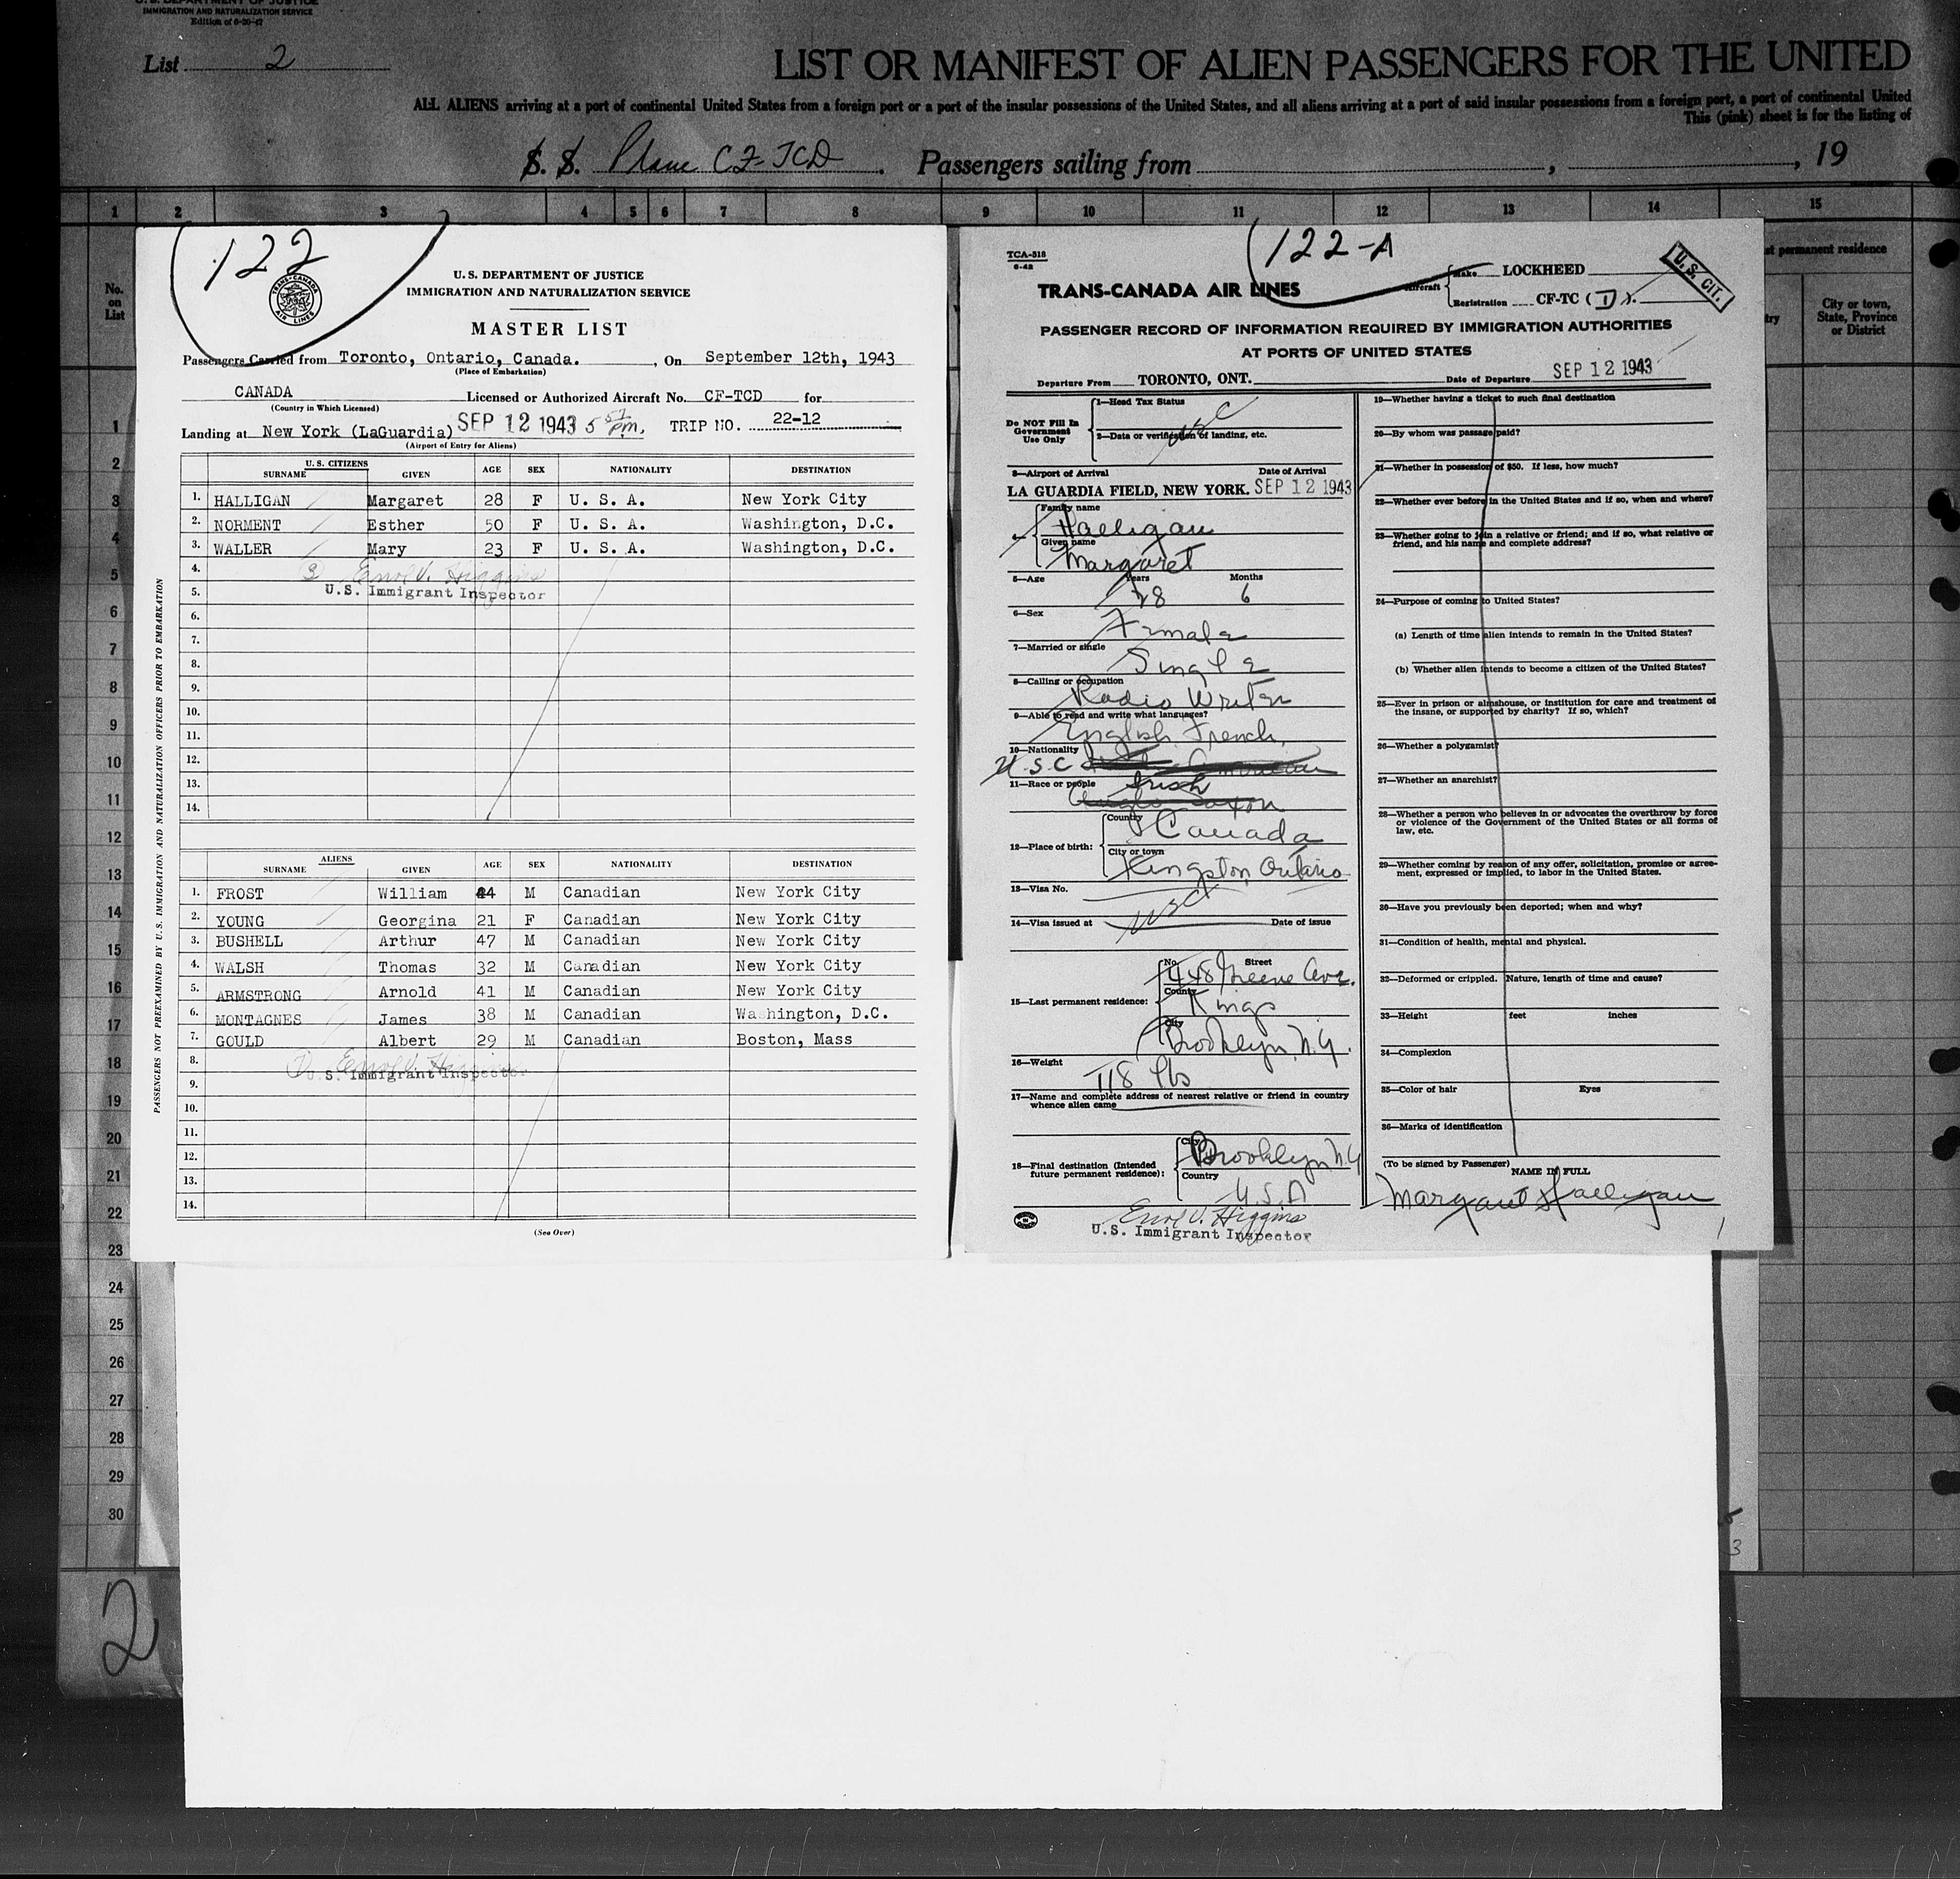 U. S. DEPARTMENT OF JUSTICE
IMMIGRATION AND NATURALIZATION SERVICE
Edition of 6-20-42
List 2
LIST OR MANIFEST OF ALIEN PASSENGERS FOR THE UNITED
ALL ALIENS arriving at a port of continental United States from a foreign port or a port of the insular possessions of the United States, and all aliens arriving at a port of said insular possessions from a foreign port, a port of continental United
This (pink) sheet is for the listing of
S. S. Plane CF-TCD . Passengers sailing from , , 19
1 2 3 4 5 6 7 8 9 10 11 12 13 14 15
No. on List
st permanent residence
try
City or town, State, Province or District
1
2
3
4
5
6
7
8
9
10
11
12
13
14
15
16
17
18
19
20
21
22
23
24
25
26
27
28
29
30
2
3
122
TRANS-CANADA AIR LINES
U. S. DEPARTMENT OF JUSTICE
IMMIGRATION AND NATURALIZATION SERVICE
MASTER LIST
Passengers Carried from Toronto, Ontario, Canada. , On September 12th, 1943
(Place of Embarkation)
CANADA Licensed or Authorized Aircraft No. CF-TCD for
(Country in Which Licensed)
Landing at New York (LaGuardia) SEP 12 1943 5 57 pm. TRIP NO. 22-12
(Airport of Entry for Aliens)
PASSENGERS NOT PREEXAMINED BY U. S. IMMIGRATION AND NATURALIZATION OFFICERS PRIOR TO EMBARKATION
U. S. CITIZENS
SURNAME GIVEN AGE SEX NATIONALITY DESTINATION
1. HALLIGAN Margaret 28 F U. S. A. New York City
2. NORMENT Esther 50 F U. S. A. Washington, D.C.
3. WALLER Mary 23 F U. S. A. Washington, D.C.
4. 3 Errol V. Higgins
5. U.S. Immigrant Inspector
6.
7.
8.
9.
10.
11.
12.
13.
14.
ALIENS
SURNAME GIVEN AGE SEX NATIONALITY DESTINATION
1. FROST William 44 M Canadian New York City
2. YOUNG Georgina 21 F Canadian New York City
3. BUSHELL Arthur 47 M Canadian New York City
4. WALSH Thomas 32 M Canadian New York City
5. ARMSTRONG Arnold 41 M Canadian New York City
6. MONTAGNES James 38 M Canadian Washington, D.C.
7. GOULD Albert 29 M Canadian Boston, Mass
8. 7 Errol V. Higgins
U.S. Immigrant Inspector
9.
10.
11.
12.
13.
14.
(See Over)
TCA-318
6-42
122-A
U. S. CIT.
TRANS-CANADA AIR LINES
Aircraft Make LOCKHEED
Registration CF-TC ( D ).
PASSENGER RECORD OF INFORMATION REQUIRED BY IMMIGRATION AUTHORITIES
AT PORTS OF UNITED STATES
Departure From TORONTO, ONT. Date of Departure SEP 12 1943
Do NOT Fill In Government Use Only
1—Head Tax Status
USC
2—Data or verification of landing, etc.
3—Airport of Arrival Date of Arrival
LA GUARDIA FIELD, NEW YORK. SEP 12 1943
4— Family name Halligan
Given name Margaret
5—Age Years 28 Months 6
6—Sex Female
7—Married or single Single
8—Calling or occupation Radio Writer
9—Able to read and write what languages?
English French
10—Nationality
U.S.C American
11—Race or people Irish
Anglo Saxon
12—Place of birth: Country Canada
City or town Kingston, Ontario
13—Visa No.
USC
14—Visa issued at Date of issue
15—Last permanent residence: No. Street 448 Greene Ave.
County Kings
City Brooklyn, N.Y.
16—Weight 118 lbs
17—Name and complete address of nearest relative or friend in country whence alien came
18—Final destination (Intended future permanent residence): City Brooklyn N.Y
Country U.S.A
Errol V. Higgins
U.S. Immigrant Inspector
19—Whether having a ticket to such final destination
20—By whom was passage paid?
21—Whether in possession of $50. If less, how much?
22—Whether ever before in the United States and if so, when and where?
23—Whether going to join a relative or friend; and if so, what relative or friend, and his name and complete address?
24—Purpose of coming to United States?
(a) Length of time alien intends to remain in the United States?
(b) Whether alien intends to become a citizen of the United States?
25—Ever in prison or almshouse, or institution for care and treatment of the insane, or supported by charity? If so, which?
26—Whether a polygamist?
27—Whether an anarchist?
28—Whether a person who believes in or advocates the overthrow by force or violence of the Government of the United States or all forms of law, etc.
29—Whether coming by reason of any offer, solicitation, promise or agreement, expressed or implied, to labor in the United States.
30—Have you previously been deported; when and why?
31—Condition of health, mental and physical.
32—Deformed or crippled. Nature, length of time and cause?
33—Height feet inches
34—Complexion
35—Color of hair Eyes
36—Marks of identification
(To be signed by Passenger) NAME IN FULL
Margaret Halligan